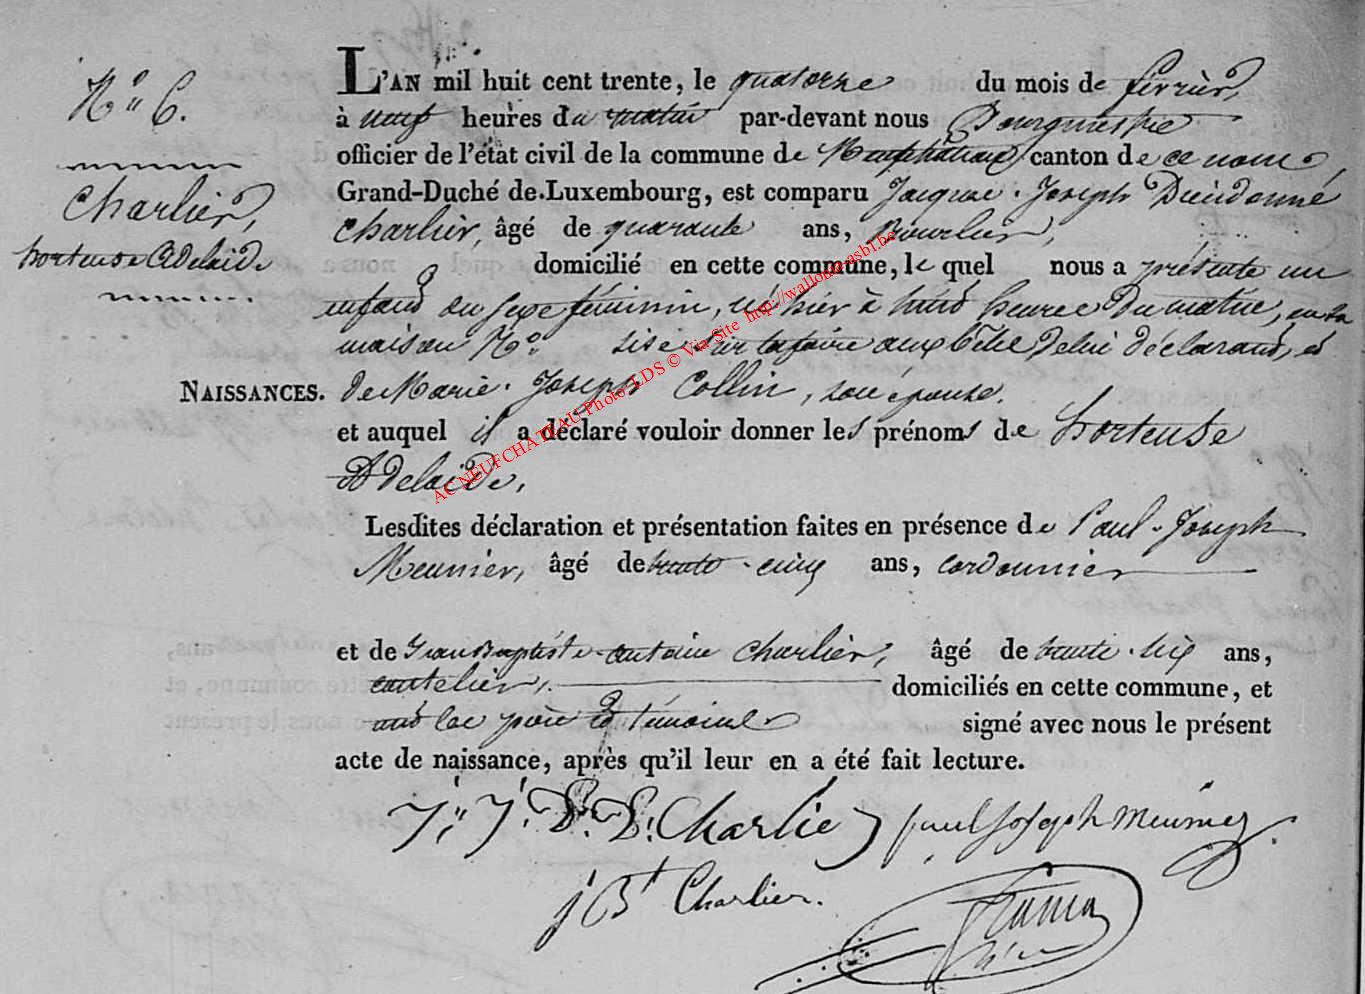 N° 6.
Charlier,
hortense Adelaide
L'AN mil huit cent trente, le quatorze du mois de février,
à neuf heures du matin par-devant nous
officier de l'état civil de la commune de Neufchateau, canton de ce nom,
Grand-Duché de Luxembourg, est comparu Jacque - Joseph Dieudonné
Charlier, âgé de quarante ans, Bourlier,
domicilié en cette commune, le quel nous a présenté un
enfant du sexe féminin, né hier à huit heures du matin, en sa
maison N° sise sur la foire aux bêtes de lui déclarant, et
NAISSANCES. de Marie - Joseph Collin, son épouse.
et auquel il a déclaré vouloir donner les prénoms de hortense
Adelaide.
Lesdites déclaration et présentation faites en présence de Paul - Joseph
Meunier, âgé de trente - cinq ans, cordonnier
et de Jean Baptiste antoine Charlier, âgé de trente six ans,
coutelier, domiciliés en cette commune, et
ont les père et témoins signé avec nous le présent
acte de naissance, après qu'il leur en a été fait lecture.
J. J. D. Charlier paul joseph meunier
j Bt Charlier.
AC NEUFCHATEAU Photo LDS © Via Site http://wallonia-asbl.be